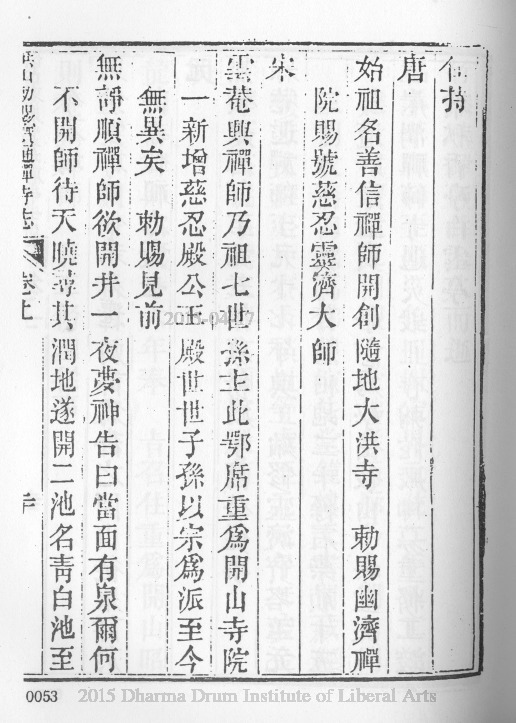 住持
唐
始祖名善信禪師開創隨地大洪寺　勅賜幽濟禪
院賜號慈忍靈濟大師
宋
雲菴興禪師乃祖七世孫主此鄂席重爲開山寺院
一新增慈忍殿公主殿世世子孫以宗爲派至今
無異矣　勅賜見前
無諍順禪師欲開井一夜夢神告曰當面有泉爾何
不開師待天曉尋其潤地遂開二池名靑白池至
洪山勅賜寶通禪寺志　卷上
0053
2015 Dharma Drum Institute of Liberal Arts